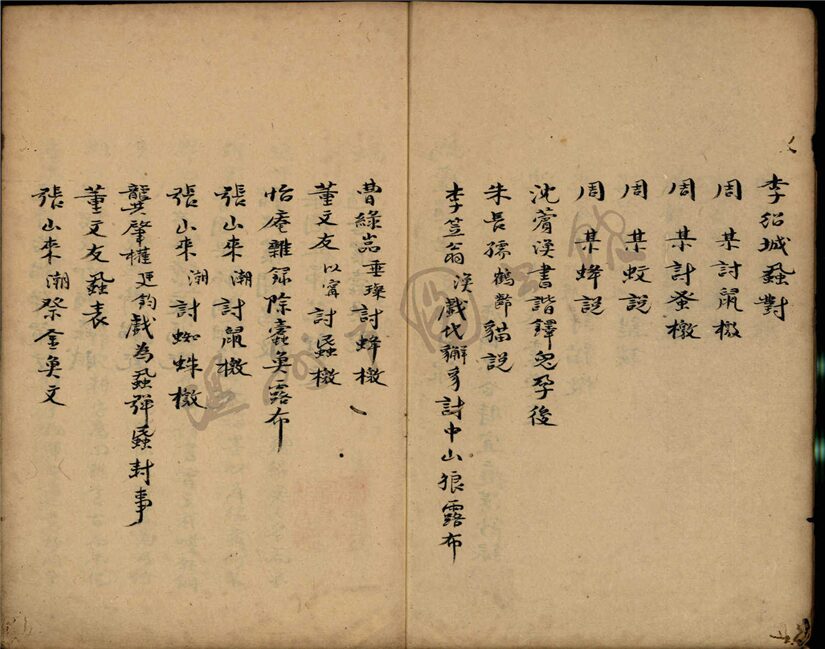 李紹城蝨對
周某討鼠檄
周某討蚤檄
周某蚊説
周某蜂説
沈 漢書諧譯兔孕後
朱長孺鶴齡貓説
李笠翁漁戲代獬豸討中山狼露布
曹綠岩垂璨討蜂檄
董文友以甯討蝨檄
怡庵雜錄除蠹魚露布
張山來潮討鼠檄
張山來潮討蜘蛛檄
龔肇權 鈞戲為蝨彈蝨封事
董文友蝨表
張山來潮祭金魚文